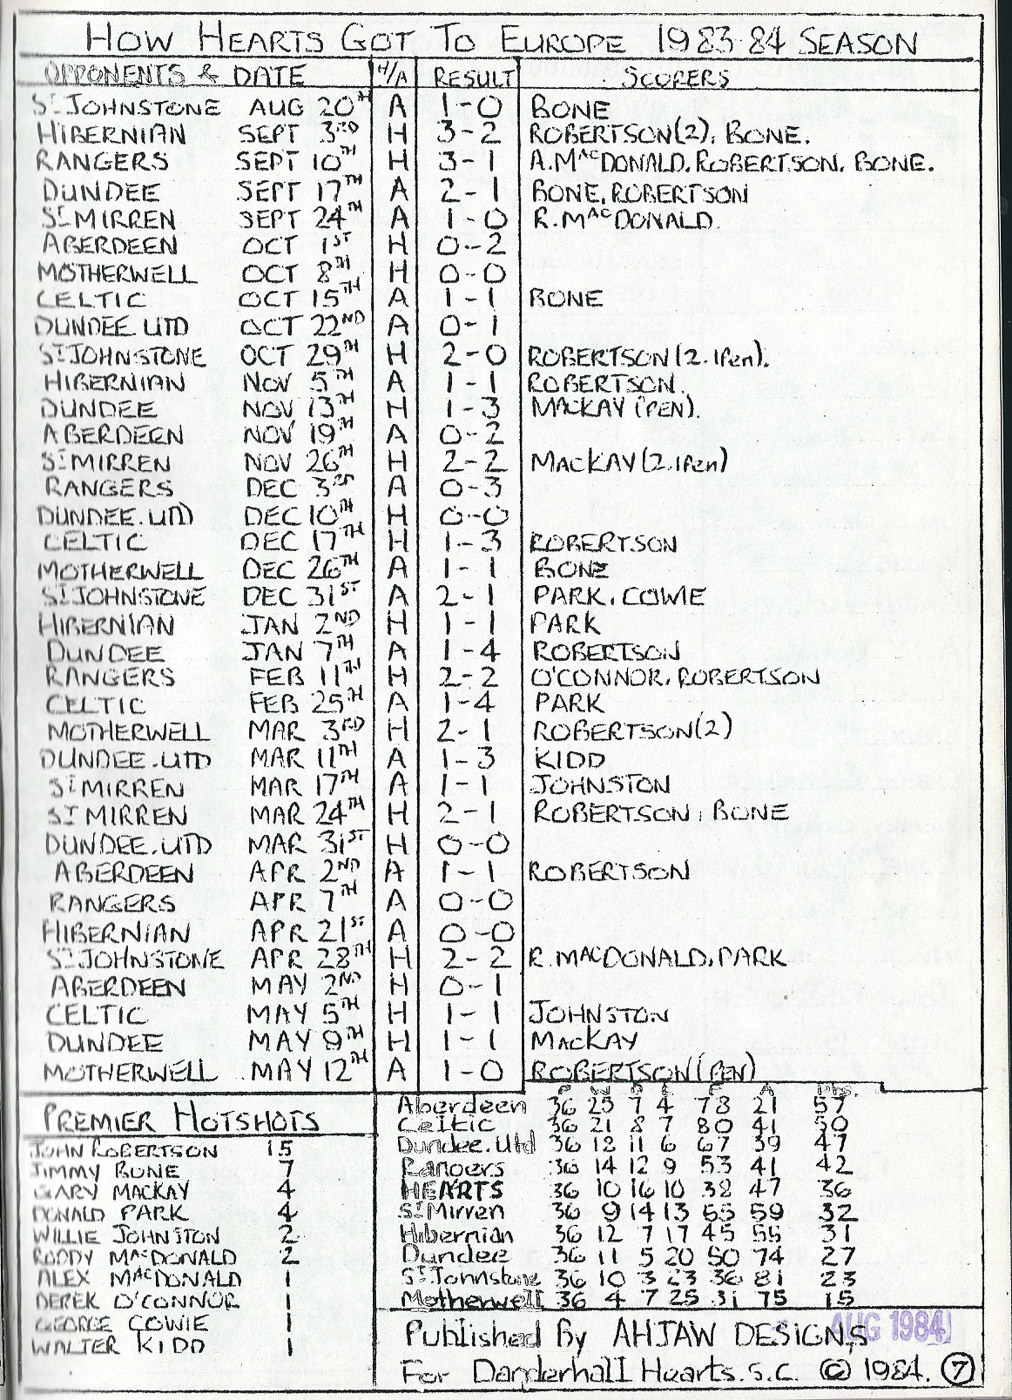 HOW HEARTS GOT TO EUROPE 1983-84 SEASON
OPPONENTS & DATE H/A RESULT SCORERS
ST JOHNSTONE AUG 20TH A 1-0 BONE
HIBERNIAN SEPT 3RD H 3-2 ROBERTSON(2), BONE.
RANGERS SEPT 10TH H 3-1 A.MACDONALD, ROBERTSON, BONE.
DUNDEE SEPT 17TH A 2-1 BONE, ROBERTSON
ST MIRREN SEPT 24TH A 1-0 R.MACDONALD.
ABERDEEN OCT 1ST H 0-2
MOTHERWELL OCT 8TH H 0-0
CELTIC OCT 15TH A 1-1 BONE
DUNDEE.UTD OCT 22ND A 0-1
ST JOHNSTONE OCT 29TH H 2-0 ROBERTSON(2.1Pen).
HIBERNIAN NOV 5TH A 1-1 ROBERTSON.
DUNDEE NOV 13TH H 1-3 MACKAY(PEN).
ABERDEEN NOV 19TH A 0-2
ST MIRREN NOV 26TH H 2-2 MACKAY(2.1Pen)
RANGERS DEC 3RD A 0-3
DUNDEE.UTD DEC 10TH H 0-0
CELTIC DEC 17TH H 1-3 ROBERTSON
MOTHERWELL DEC 26TH A 1-1 BONE
ST JOHNSTONE DEC 31ST A 2-1 PARK, COWIE
HIBERNIAN JAN 2ND H 1-1 PARK
DUNDEE JAN 7TH A 1-4 ROBERTSON
RANGERS FEB 11TH H 2-2 O'CONNOR, ROBERTSON
CELTIC FEB 25TH A 1-4 PARK
MOTHERWELL MAR 3RD H 2-1 ROBERTSON(2)
DUNDEE.UTD MAR 11TH A 1-3 KIDD
ST MIRREN MAR 17TH A 1-1 JOHNSTON
ST MIRREN MAR 24TH H 2-1 ROBERTSON, BONE
DUNDEE.UTD MAR 31ST H 0-0
ABERDEEN APR 2ND A 1-1 ROBERTSON
RANGERS APR 7TH A 0-0
HIBERNIAN APR 21ST A 0-0
ST JOHNSTONE APR 28TH H 2-2 R.MACDONALD, PARK
ABERDEEN MAY 2ND H 0-1
CELTIC MAY 5TH H 1-1 JOHNSTON
DUNDEE MAY 9TH H 1-1 MACKAY
MOTHERWELL MAY 12TH A 1-0 ROBERTSON(PEN)
PREMIER HOTSHOTS
JOHN ROBERTSON 15
JIMMY BONE 7
GARY MACKAY 4
DONALD PARK 4
WILLIE JOHNSTON 2
RODDY MACDONALD 2
ALEX MACDONALD 1
DEREK O'CONNOR 1
GEORGE COWIE 1
WALTER KIDD 1
P W D L F A Pts.
Aberdeen 36 25 7 4 78 21 57
Celtic 36 21 8 7 80 41 50
Dundee.Utd 36 18 11 6 67 39 47
Rangers 36 14 12 9 53 41 42
HEARTS 36 10 16 10 38 47 36
St Mirren 36 9 14 13 55 59 32
Hibernian 36 12 7 17 45 55 31
Dundee 36 11 5 20 50 74 27
St Johnstone 36 10 3 23 36 81 23
Motherwell 36 4 7 25 31 75 15
Published By AHJAW DESIGNS
AUG 1984
For Danderhall Hearts.S.C. © 1984. 7